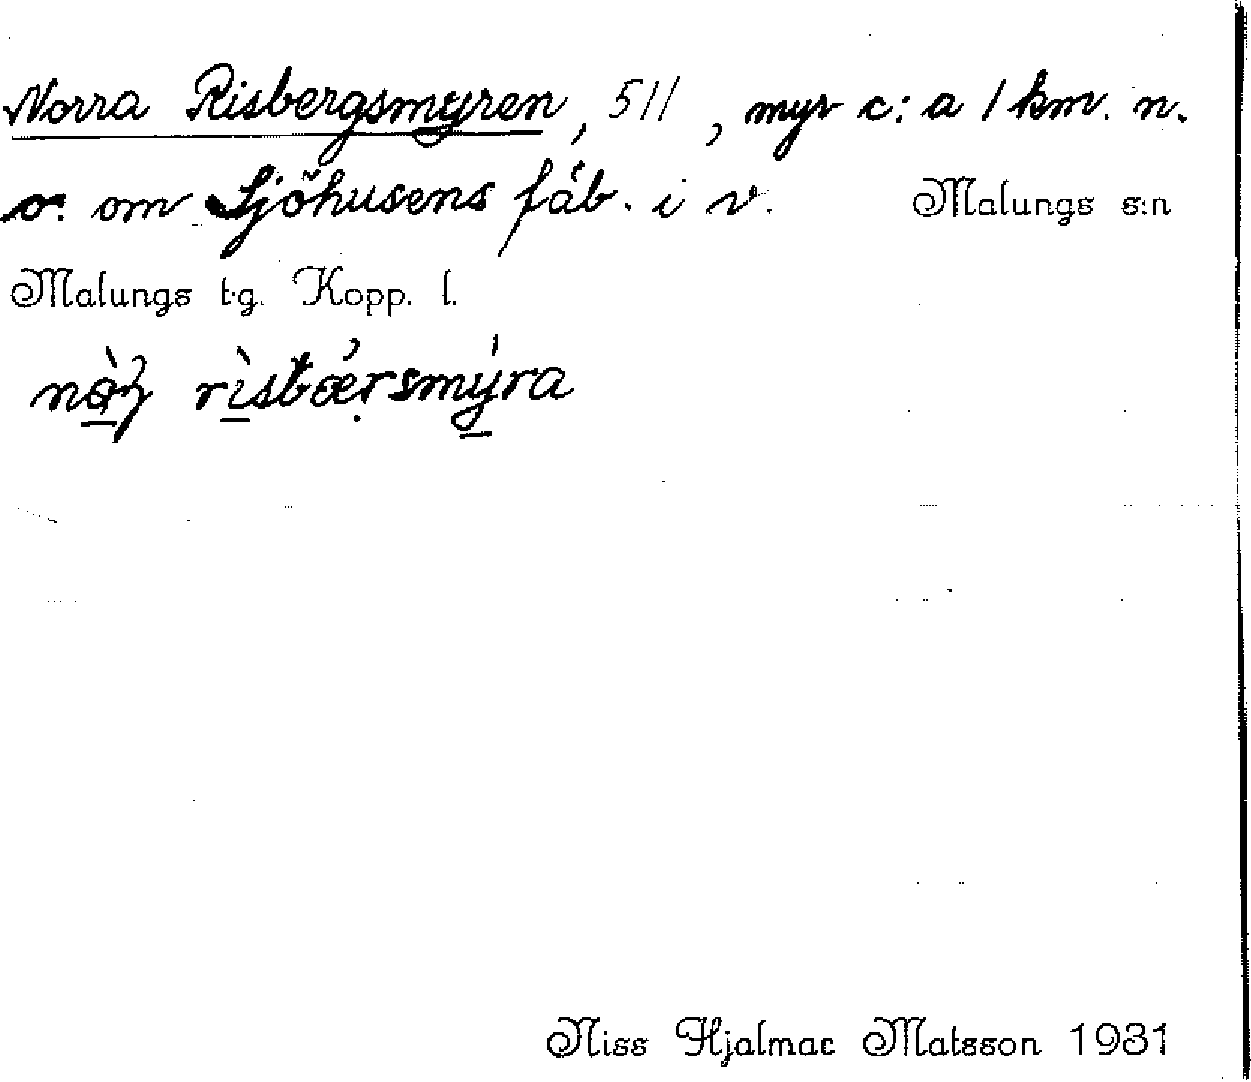 Norra Risbergsmyren, 511, myr c:a 1 km. n.
o. om Sjöhusens fäb. i v. Malungs s:n
Malungs t.g. Kopp. l.
rìsbǽrsmýra
Niss Hjalmar Matsson 1931